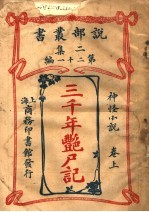 說部叢書
二集
第二十一編
神怪小說
卷上
三千年艷尸記
上海
商務印書館發行